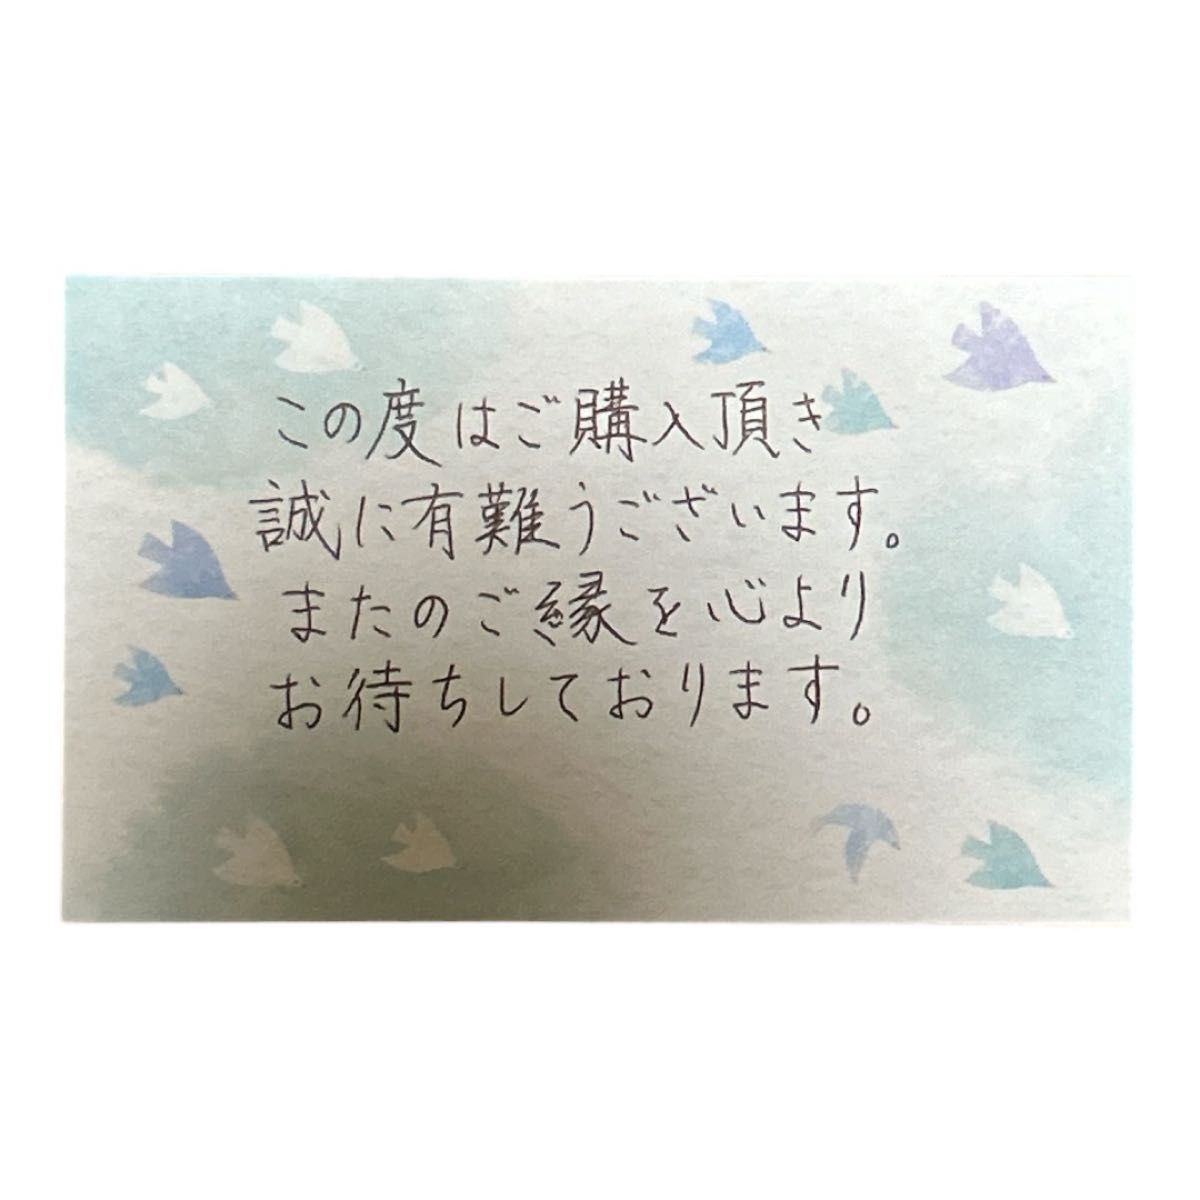 この度はご購入頂き
誠に有難うございます。
またのご縁を心より
お待ちしております。